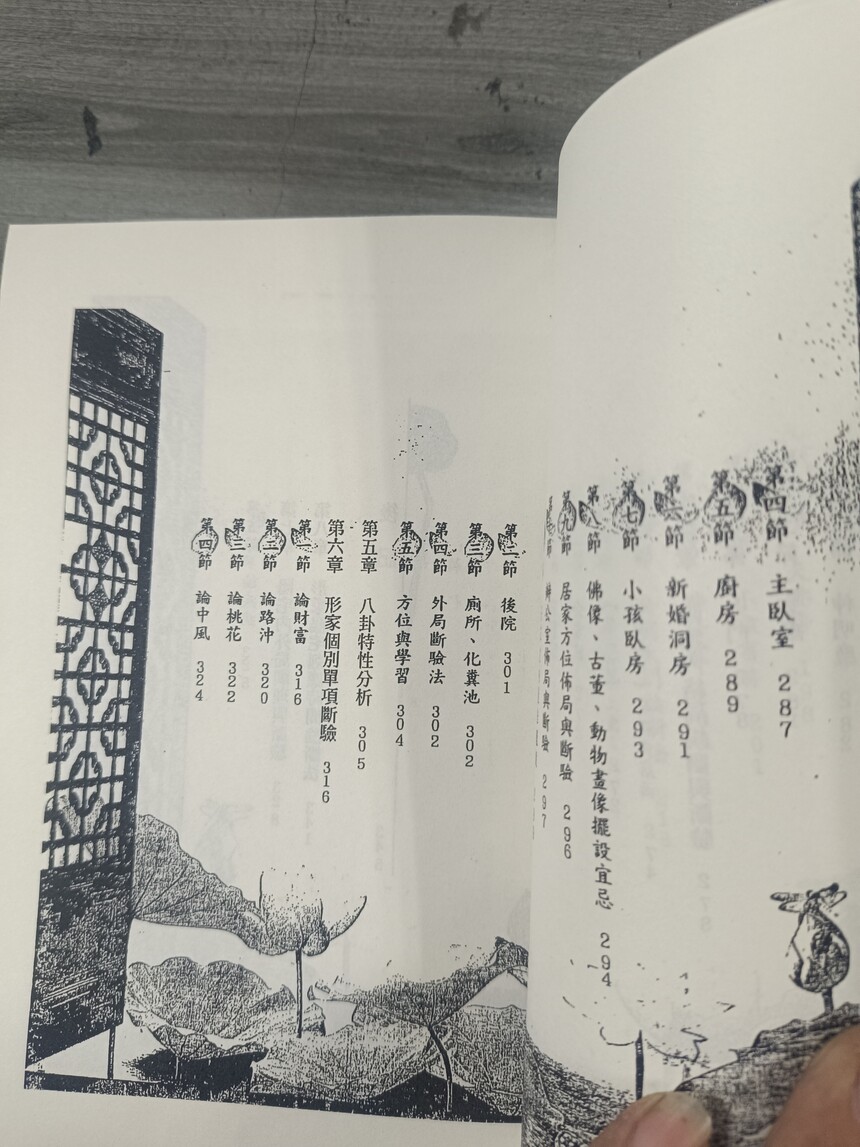 第四節 主臥室 287
第五節 廚房 289
第六節 新婚洞房 291
第七節 小孩臥房 293
第八節 佛像、古董、動物畫像擺設宜忌 294
第九節 居家方位佈局與斷驗 296
辦公室佈局與斷驗 297
第二節 後院 301
第三節 廁所、化糞池 302
第四節 外局斷驗法 302
第五節 方位與學習 304
第五章 八卦特性分析 305
第六章 形家個別單項斷驗 316
第一節 論財富 316
第二節 論路沖 320
第三節 論桃花 322
第四節 論中風 324